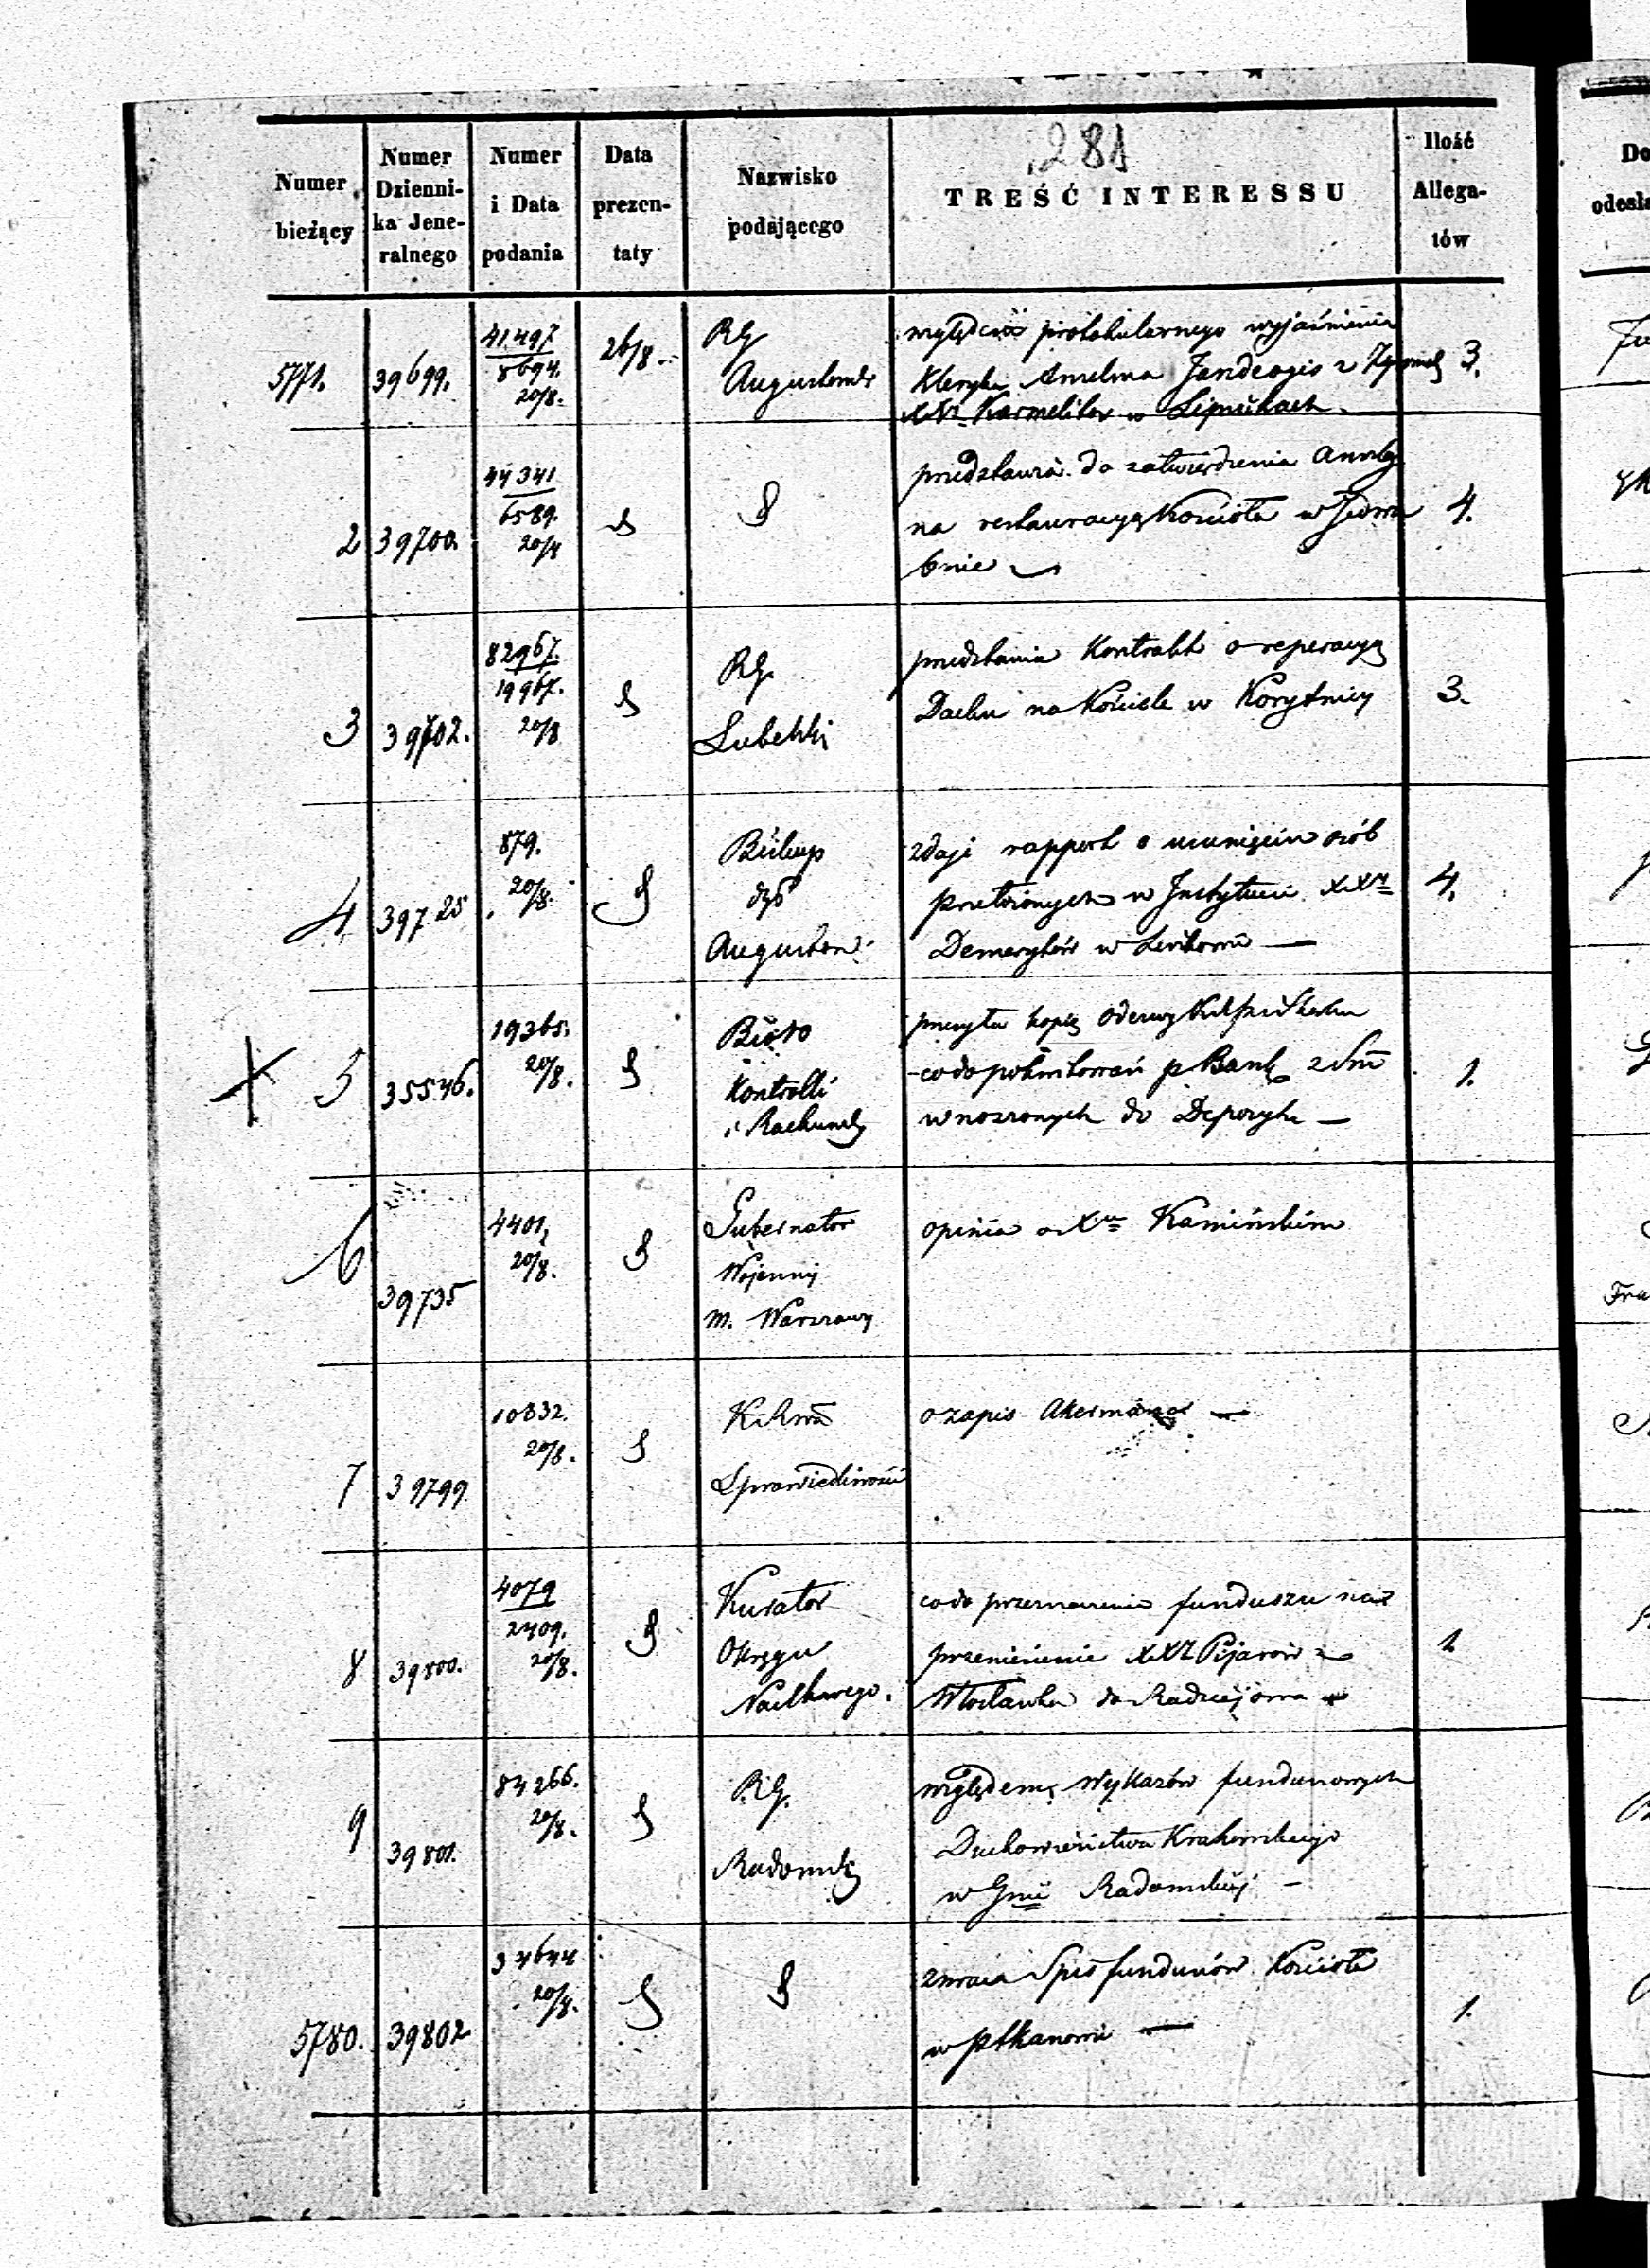 281
Numer bieżący
Numer Dzienni-
ka Jene-
ralnego
Numer
i Data
podania
Data
prezen-
taty
Nazwisko
podającego
TREŚĆ INTERESSU
Ilość
Allega-
tów
5771. 39699. 41.497 8694. 20/8. 26/8 RG
Augustowski
względem protokularnego wyjaśnienia
Kleryka Anselma z
XXr Karmelitów w 3.
2 39700. 44341 6589. 20/8
przedstawia do zatwierdzenia
na restauracyą Kościoła w Jedwa
bnie 4.
3 39702. 82967. 19967. 20/8 RG.
Lubelski
przedstawia Kontrakt o reperacyą
Dachu na Kościele w Korytnicy 3.
4 39725 879. 20/8. Biskup
dyó
Augustow.
zdaje rapport o usunięciu osób
w Instytucie XXr
Demerytów w 4.
X 5 35546. 19365. 20/8. Biuro
Kontrolli
i Rachund
przesyła kopią
co do pokwitowań p Bank z Sm
wnoszonych do Depozytu 1.
6 39735 4401, 20/8. Gubernator
Wojenny
m. Warszawy
opinia o Xu Kamińskim
7 39799 10832. 20/8. K. Rwa
Sprawiedliwości
o zapis Akermana
8 39800. 4079 2409. 20/8. Kurator
Okręgu
Naukowego.
co do przeznaczenia funduszu na
przeniesienie XXr Pijarów z
Włocławka do Radziejowa 1
9 39801. 84266. 20/8. R.G.
Radomski
względem Wykazów funduszowych
Duchowieństwa Krakowskiego
w Gnii Radomskiej
5780. 39802 34644 20/8.
zwraca Spis funduszów Kościoła
w Ptkanowie 1.